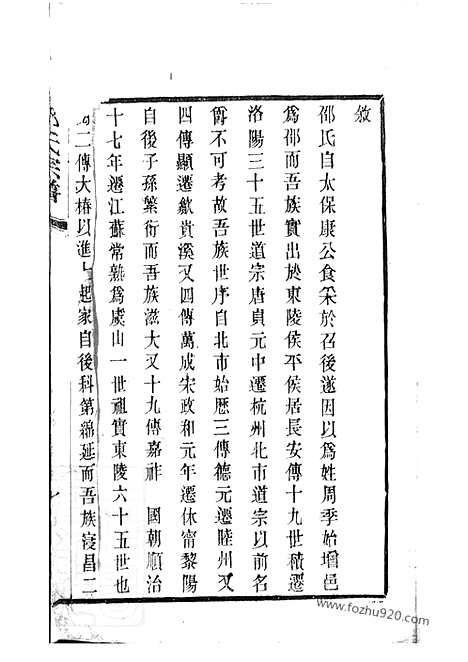 敘
邵氏自太保康公食采於召後遂因以爲姓周季始增邑
爲邵而吾族實出於東陵侯平侯居長安傳十九世積遷
洛陽三十五世道宗唐貞元中遷杭州北市道宗以前名
爵不可考故吾族世序自北市始歷三傳德元遷睦州又
四傳顯遷歙貴溪又四傳萬成宋政和元年遷休甯黎陽
自後子孫繁衍而吾族滋大又十九傳嘉祚 國朝順治
十七年遷江蘇常熟爲虞山一世祖實東陵六十五世也
二傳大椿以進士起家自後科第綿延而吾族寖昌二
氏宗譜
www.fozhu920.com